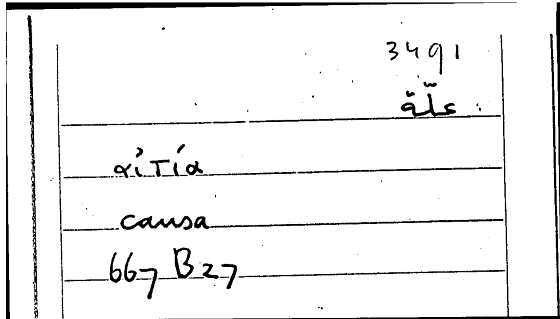 3491
علّة
αἰτία
causa
667 B27